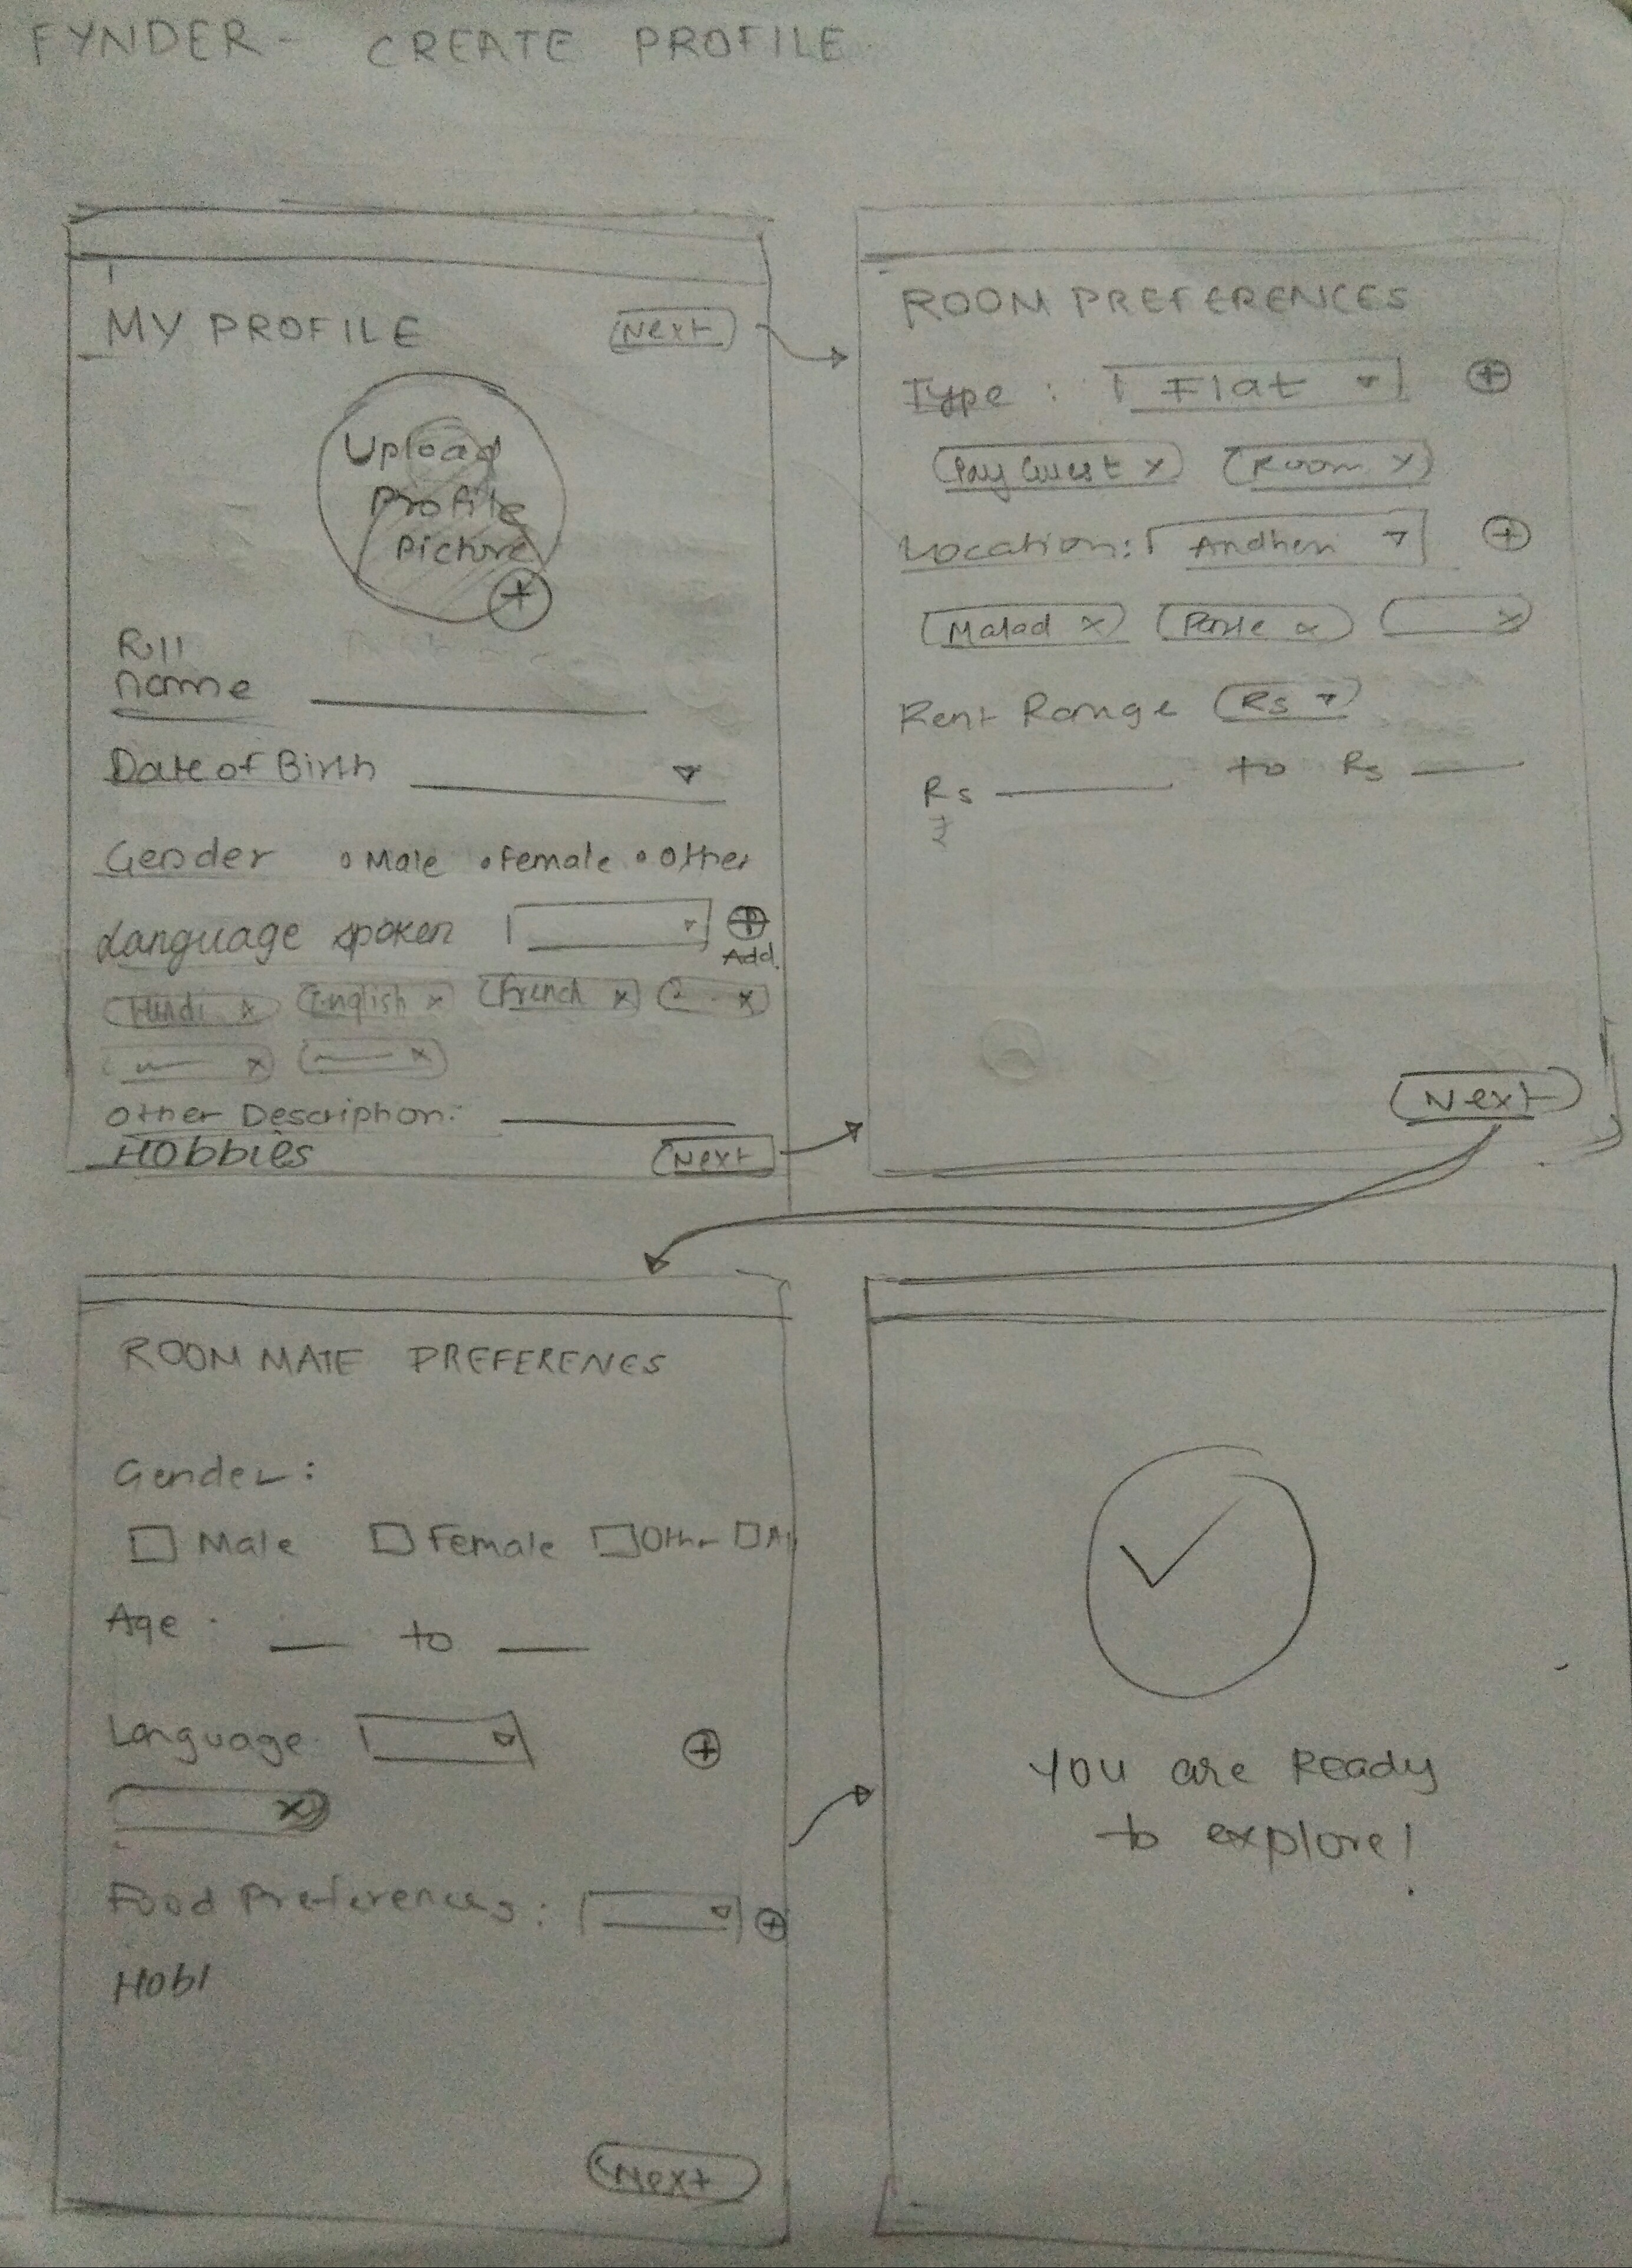 FYNDER - CREATE PROFILE
MY PROFILE Next
Upload
Profile
Picture
+
name
Date of Birth
Gender Male Female Other
Language spoken +
Add
Hindi x English x French x x
x x
Other Description:
HObbies Next
ROOM PREFERENCES
Type : Flat +
Pay Guest x Room x
Location: Andheri +
Malad x x x
Rent Range Rs
Rs to Rs
₹
Next
ROOM MATE PREFERENES
Gender :
Male Female Other
Age to
Language +
x
Food Preferences : +
Hobl
Next
YOU are Ready
to explore!